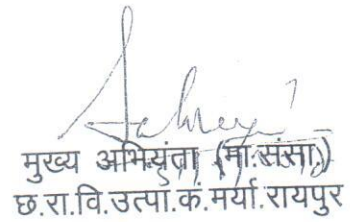 मुख्य अभियंता (मा.संसा.)
छ.रा.वि.उत्पा.कं.मर्या.रायपुर